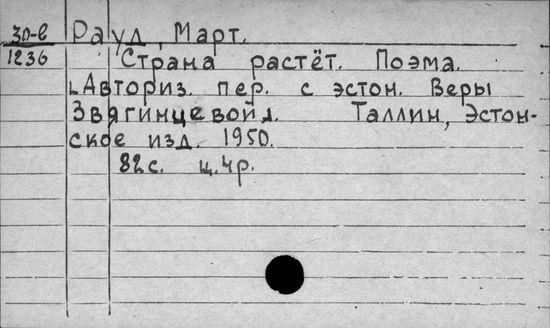 30-е Рауд, Март.
1236 Страна растёт. Поэма.
[Авториз. пер. с эстон. Веры
Звягинцевой]. Таллин, Эстон-
ское изд. 1950.
82с. ц.4р.